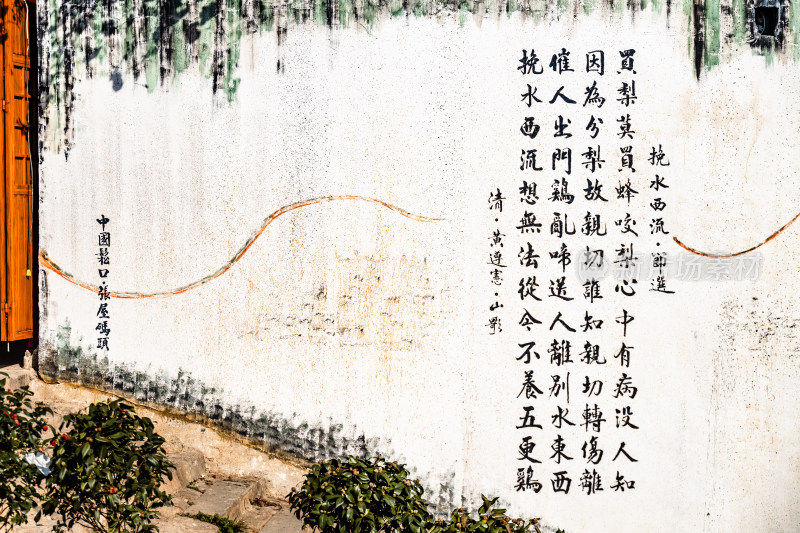 挽水西流·節選
買梨莫買蜂咬梨心中有病没人知
因為分梨故親切誰知親切轉傷離
催人出門鷄亂啼送人離別水東西
挽水西流想無法從今不養五更鷄
清·黃遵憲·山歌
中國鬆口·張屋碼頭